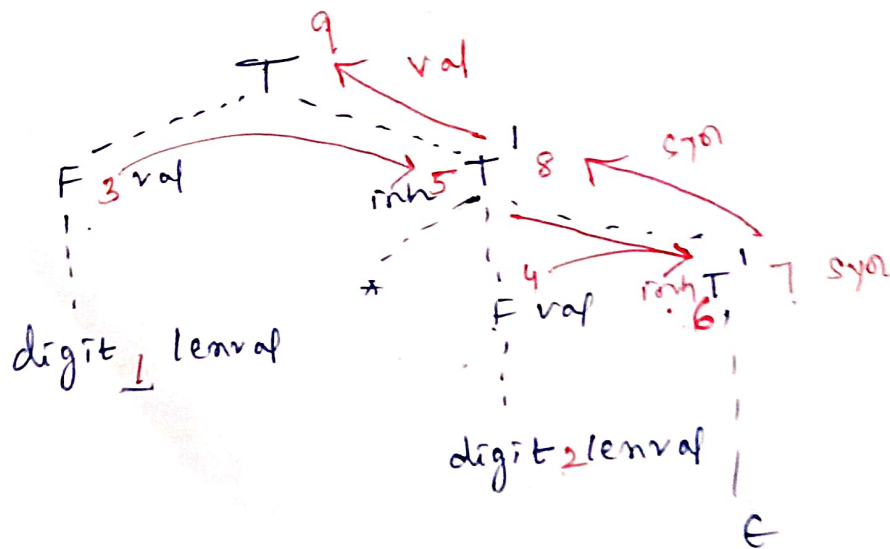 9
T val
F 3 val inh 5 T' 8 syn
* 4 inh T' 7 syn
F val 6
digit 1 lexval
digit 2 lexval
ε